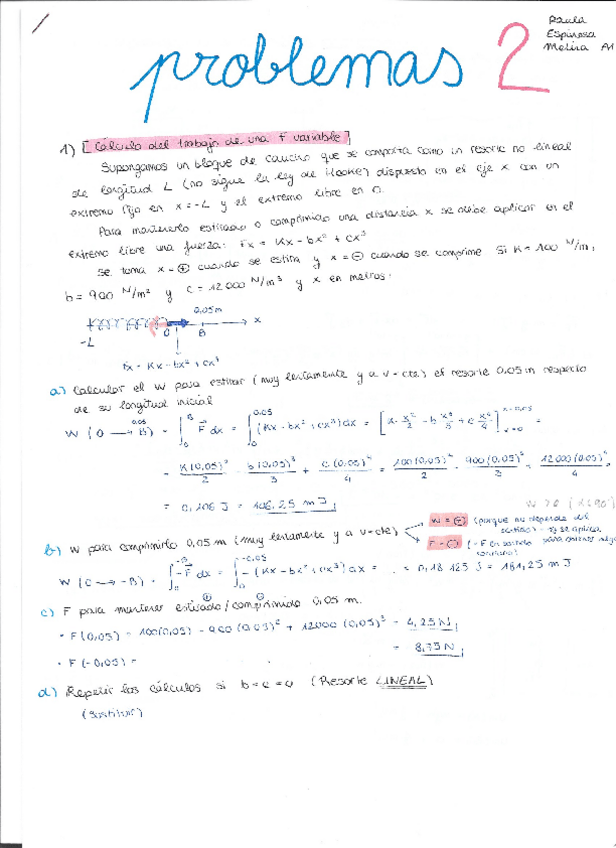 Paula
Espinosa
Molina A1
problemas 2
1) [Cálculo del trabajo de una F variable]
Supongamos un bloque de caucho que se comporta como un resorte no lineal
de longitud L (no sigue la ley de Hooke) dispuesto en el eje x con un
extremo fijo en x=-L y el extremo libre en O.
Para mantenerlo estirado o comprimido una distancia x se debe aplicar en el
extremo libre una fuerza: Fx = Kx - bx² + cx³
Se toma x = ⊕ cuando se estira y x = ⊖ cuando se comprime Si K = 100 N/m,
b = 900 N/m² y c = 12000 N/m³ y x en metros:
0,05m
-L O B x
Fx = Kx - bx² + cx³
a) Calcular el W para estirar (muy lentamente y a v-cte) el resorte 0,05m respecto
de su longitud inicial
W (O → B) = ∫₀^0,05 F dx = ∫₀^0,05 (Kx - bx² + cx³) dx = [K x²/2 - b x³/3 + c x⁴/4] x=0,05 x=0 =
= K(0,05)²/2 - b(0,05)³/3 + c(0,05)⁴/4 = 100(0,05)²/2 - 900(0,05)³/3 + 12000(0,05)⁴/4 =
= 0,106 J = 106,25 mJ
b) W para comprimirlo 0,05m (muy lentamente y a v-cte)
W = ⊕ (porque no depende del
F = ⊖
W (O → -B) = ∫₀^-B -F dx = ∫₀^-0,05 -(Kx - bx² + cx³) dx = = 0,18125 J = 181,25 mJ
c) F para mantener estirado/comprimido 0,05 m.
· F(0,05) = 100(0,05) - 900(0,05)² + 12000(0,05)³ = 4,25 N
· F(-0,05) = = 8,75 N
d) Repetir los cálculos si b = c = 0 (Resorte LINEAL)
(sustituir)